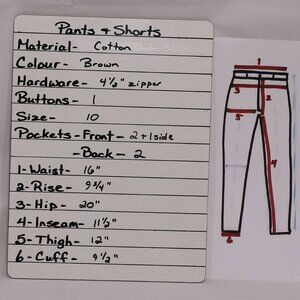 Pants & Shorts
Material- Cotton
Colour- Brown
Hardware- 4½" zipper
Buttons- 1
Size- 10
Pockets-Front- 2 + 1 side
-Back- 2
1-Waist- 16"
2-Rise- 9¾"
3-Hip- 20"
4-Inseam- 11½"
5-Thigh- 12"
6-Cuff- 9½"
1
2
3
5
4
6